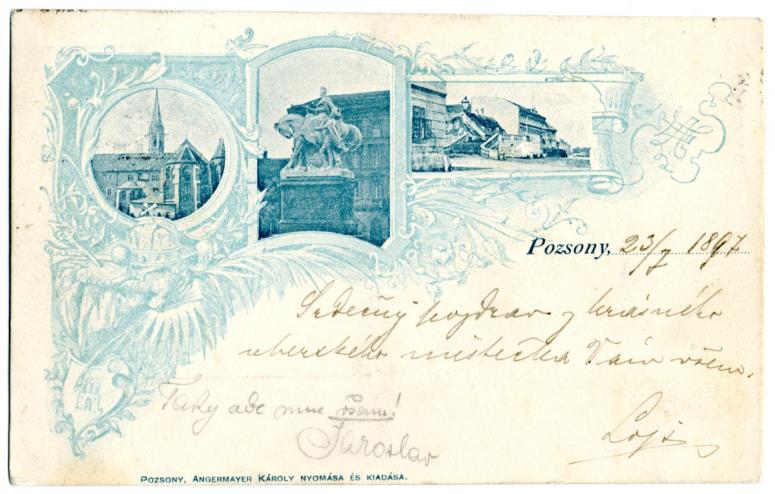 Pozsony, 23/7 1897
Srdečný pozdrav z krásného
uherského městečka Vám všem.
Taky ode mne všem!
Lojs
Jaroslav
POZSONY, ANGERMAYER KÁROLY NYOMÁSA ÉS KIADÁSA.